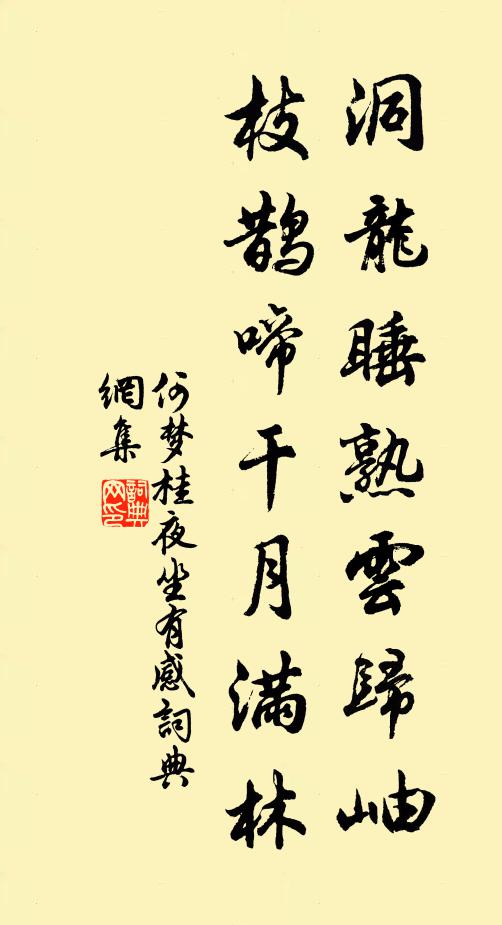 洞龍睡熟雲歸岫
枝鵲啼干月滿林
何梦桂夜坐有感詞典
網集
詞典網印